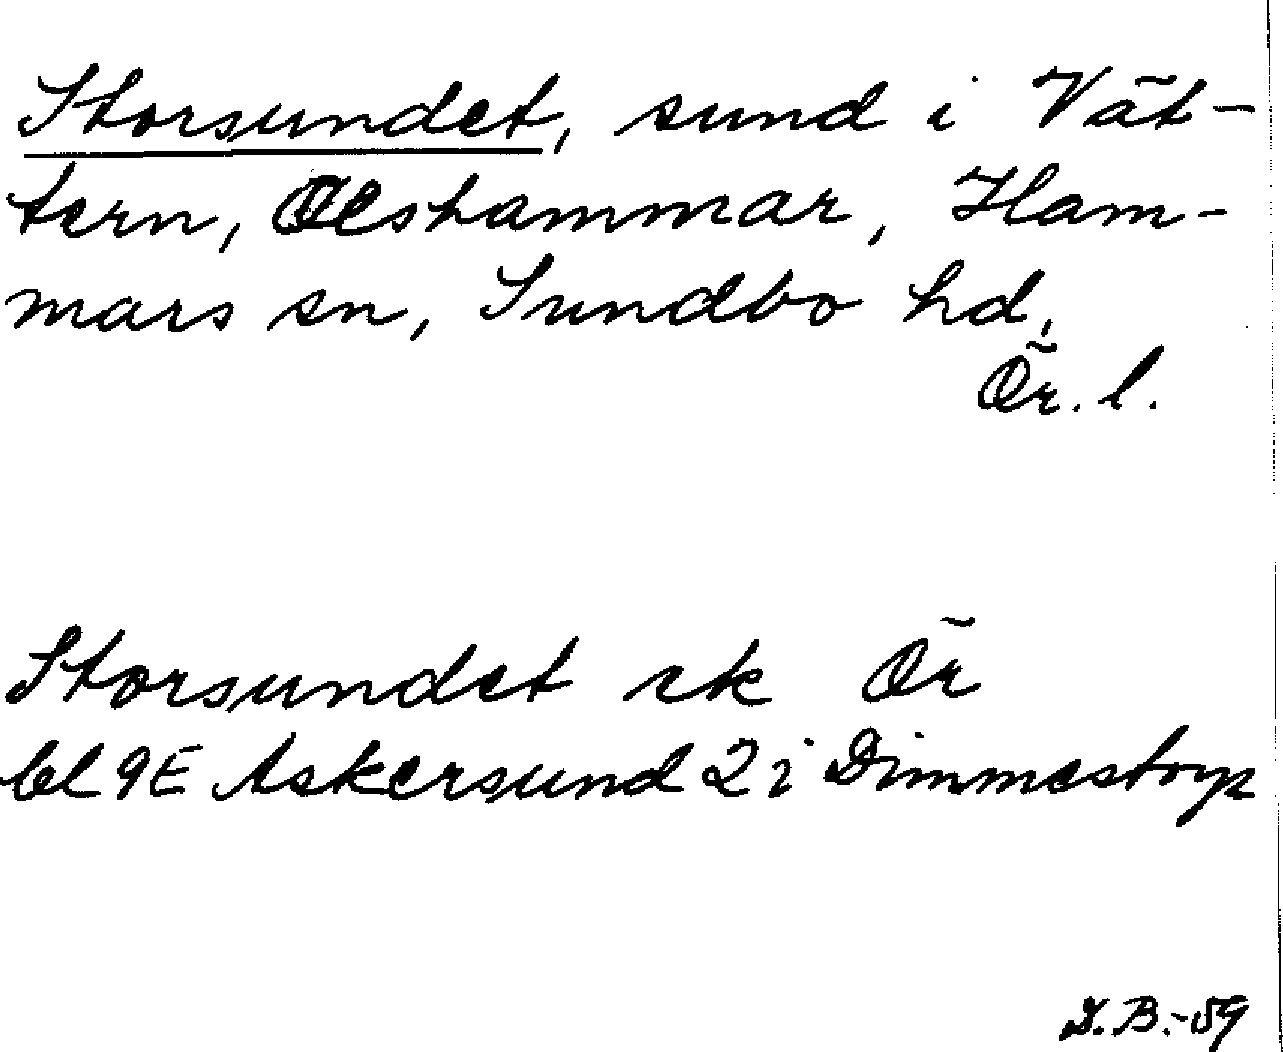 Storsundet, sund i Vät-
tern, Olshammar, Ham-
mars sn, Sundbo hd,
Ör. l.
Storsundet ek Ör
bl 9E Askersund 2 i Dimmestorp
B.-59